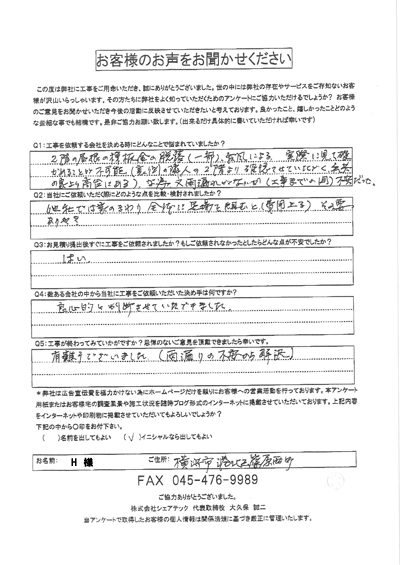 お客様のお声をお聞かせください
この度は弊社に工事をご用命いただき、誠にありがとうございました。世の中には弊社の存在やサービスをご存知ないお客
様が沢山いらっしゃいます。その方たちに弊社をよく知っていただくためのアンケートにご協力いただけるでしょうか? お客様
のご意見をお聞かせいただき今後の活動に反映させていただきたいと考えております。良かったこと、嬉しかったことどのよう
な些細な事でも結構です。是非ご協力お願い致します。(出来るだけ具体的に書いていただければ幸いです)
Q1:工事を依頼する会社を決める時にどんなことで悩まれていましたか?
2階の屋根の
(一部)、台風による 実際に見て確
不可能、
2階より
の為より高位にある)、
不安だった。
Q2:当社にご依頼いただく際にどのような点を比較・検討されましたか?
他社では家のまわり全体に足場を組むと(費用上る) その要
ありや?
Q3:お見積り提出後すぐに工事をご依頼されましたか?もしご依頼されなかったとしたらどんな点が不安でしたか?
はい
Q4:数ある会社の中から当社に工事をご依頼いただいた決め手は何ですか?
良心的と判断させていただきました。
Q5:工事が終わってみていかがですか?忌憚のないご意見を頂戴できましたら幸いです。
有難うございました(雨漏りの不安から解放)
*弊社は広告宣伝費を極力かけない為にホームページだけを頼りにお客様への営業活動を行っております。本アンケート
用紙またはお客様宅の調査風景や施工状況を随時ブログ形式のインターネットに掲載させていただいております。上記内容
をインターネットや印刷物に掲載させていただいてもよろしいでしょうか?
下記の中から〇印をお付下さい。
( )名前を出してもよい (✓)イニシャルなら出してもよい
お名前: H 様 ご住所: 横浜市港北区篠原西町
FAX 045-476-9989
ご協力ありがとうございました。
株式会社シェアテック 代表取締役 大久保 誠二
当アンケートで取得したお客様の個人情報は関係法規に基づき厳正に管理いたします。